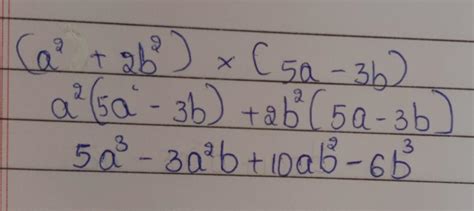 (a² + 2b²) × (5a - 3b)
a²(5a - 3b) + 2b²(5a - 3b)
5a³ - 3a²b + 10ab² - 6b³